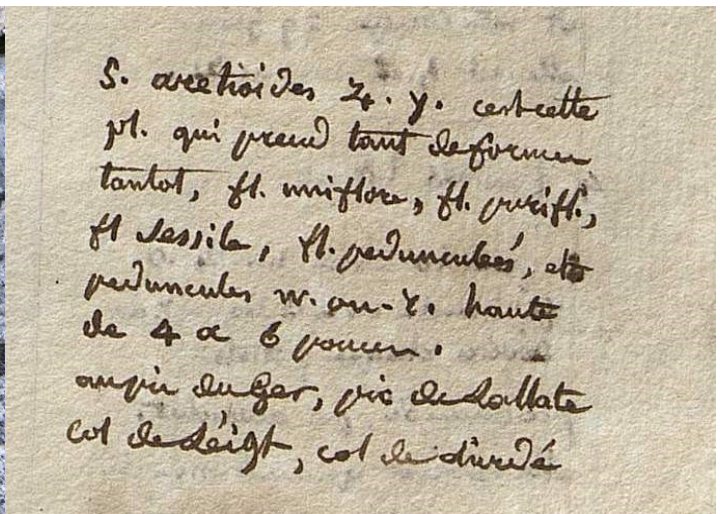 S. aretioides 4. y. cest cette
pl. qui prend tant de formes
tantot, fl. uniflore, fl. purifl.,
fl sessile, fl. pedunculées, et
peduncules haute
de 4 a 6 pouces.
au pic du Ger, pic de Lallate
col de Léigt, col de durdé